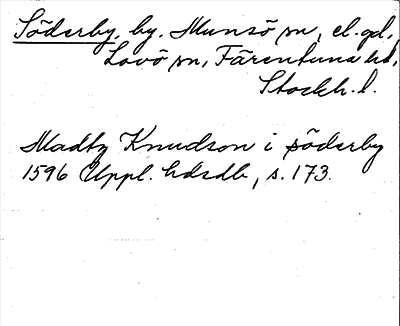 Söderby, by, Munsö sn, el. gd,
Lovö sn, Färentuna hd,
Stockh. l.
Madtz Knudson i söderby
1596 Uppl. hdrdb, s. 173.